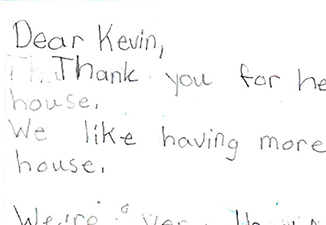 Dear Kevin,
Thank you for he
house.
We like having more
house.